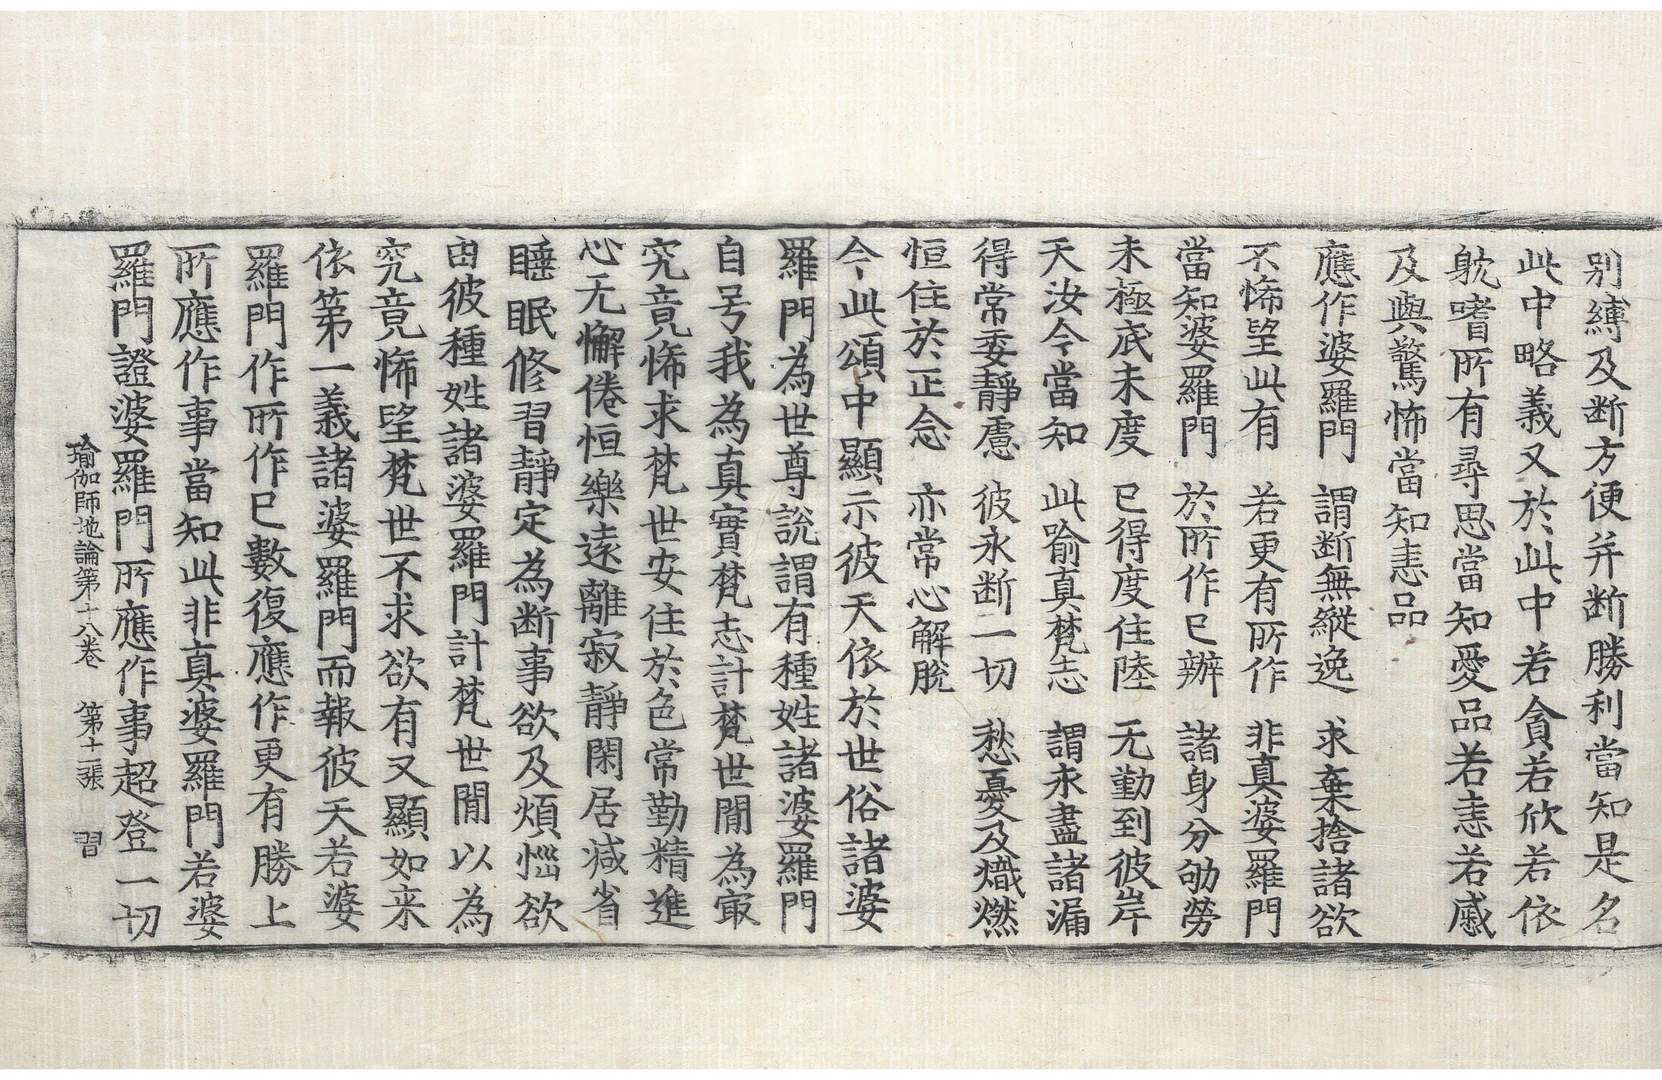 别縛及断方便并断勝利當知是名
此中略義又於此中若貪若欣若依
躭嗜所有尋思當知愛品若恚若慼
及與驚怖當知恚品
應作婆羅門 謂断無縱逸 求棄捨諸欲
不悕望此有 若更有所作 非真婆羅門
當知婆羅門 於所作已辦 諸身分劬勞
未極底未度 已得度住陸 无勤到彼岸
天汝今當知 此喻真梵志 謂永盡諸漏
得常委靜慮 彼永断一切 愁憂及熾燃
恒住於正念 亦常心解脫
今此頌中顯示彼天依於世俗諸婆
羅門為世尊說謂有種姓諸婆羅門
自号我為真實梵志計梵世間為㝡
究竟悕求梵世安住於色常勤精進
心无懈倦恒樂遠離寂靜閑居減省
睡眠修習靜定為断事欲及煩惱欲
由彼種姓諸婆羅門計梵世間以為
究竟悕望梵世不求欲有又顯如来
依第一義諸婆羅門而報彼天若婆
羅門作所作已數復應作更有勝上
所應作事當知此非真婆羅門若婆
羅門證婆羅門所應作事超登一切
瑜伽師地論第十八卷 第十二張 習